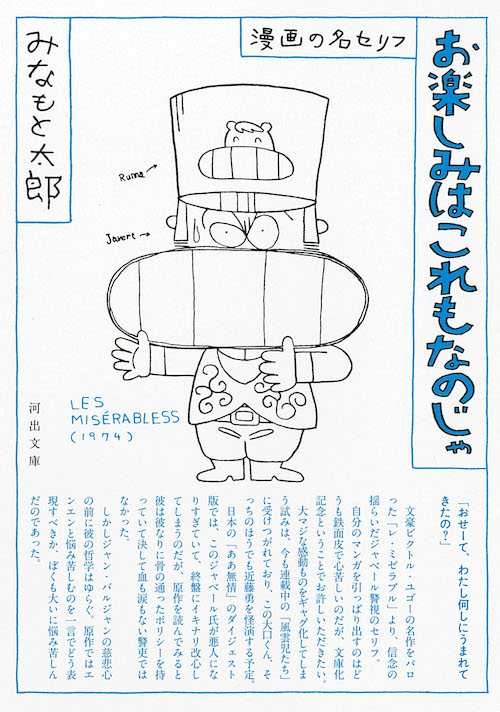 お楽しみはこれもなのじゃ
漫画の名セリフ
みなもと太郎
Ruma
Javert
LES
MISÉRABLESS
(1974)
河出文庫
「おせーて、わたし何しにうまれて
きたの?」
文豪ビクトル・ユゴーの名作をパロ
った「レ・ミゼラブル」より、信念の
揺らいだジャベール警視のセリフ。
自分のマンガを引っぱり出すのはど
うも鉄面皮で心苦しいのだが、文庫化
記念ということでお許しいただきたい。
大マジな感動ものをギャグ化してしま
う試みは、今も連載中の「風雲児たち」
に受けつがれており、この大口くん、そ
っちのほうでも近藤勇を怪演する予定。
日本の「ああ無情」のダイジェスト
版では、このジャベール氏が悪人にな
りすぎていて、終盤にイキナリ改心し
てしまうのだが、原作を読んでみると
彼は彼なりに骨の通ったポリシーを持
っていて決して血も涙もない警吏では
なかった。
しかしジャン・バルジャンの慈悲心
の前に彼の哲学はゆらぐ。原作ではエ
ンエンと悩み苦しむのを一言でどう表
現すべきか、ぼくも大いに悩み苦しん
だのであった。